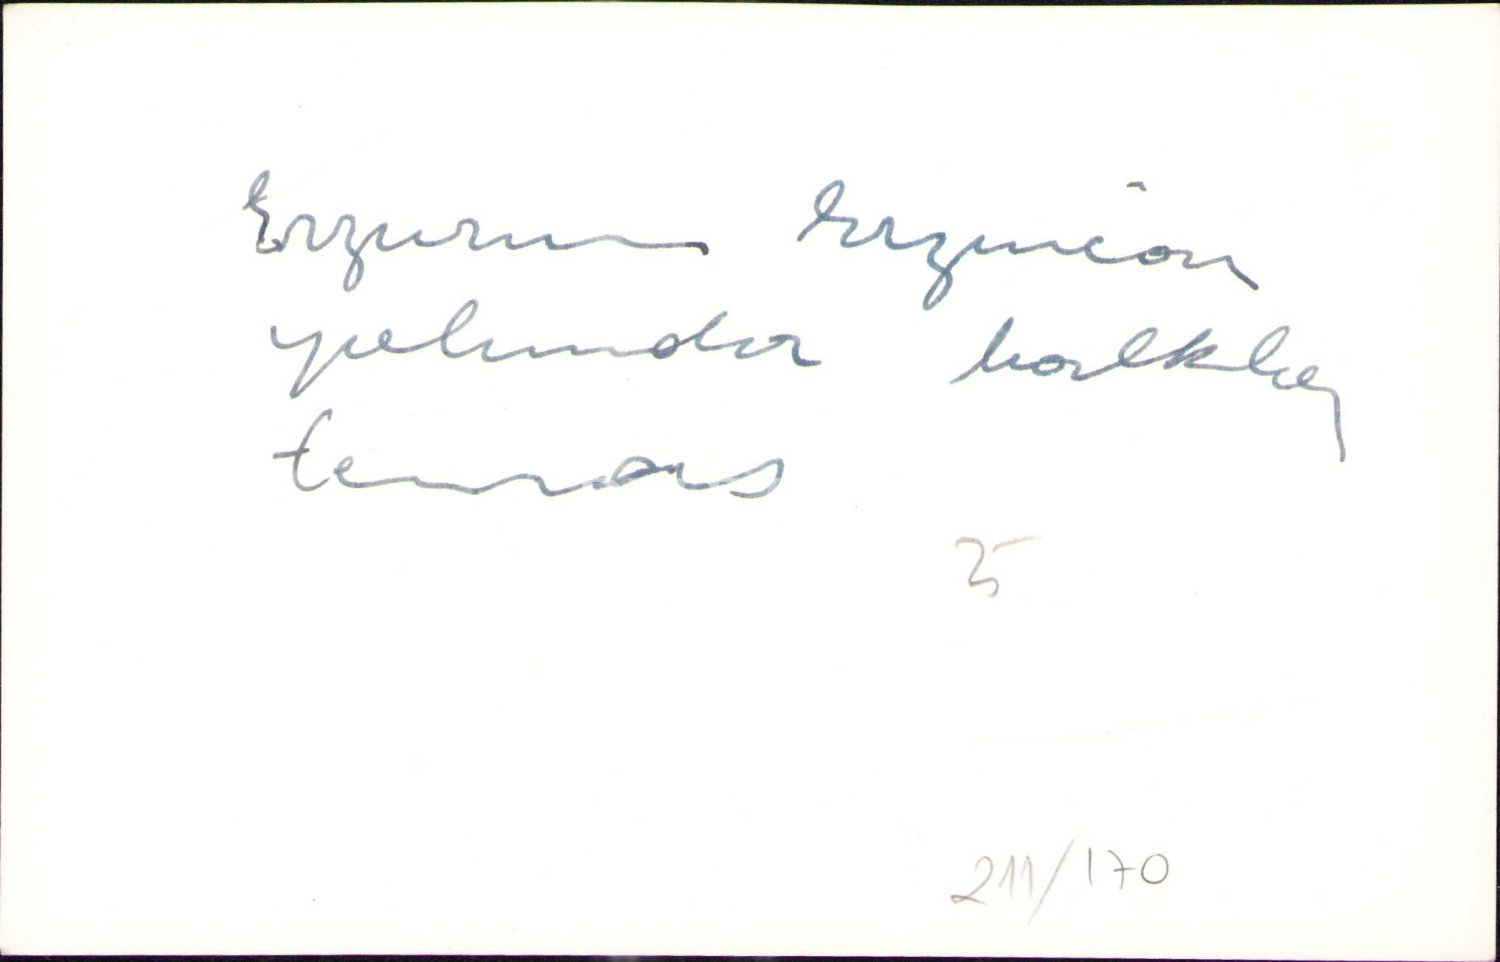 Erzurum Erzincan
yolunda halkla
temas
25
211/170